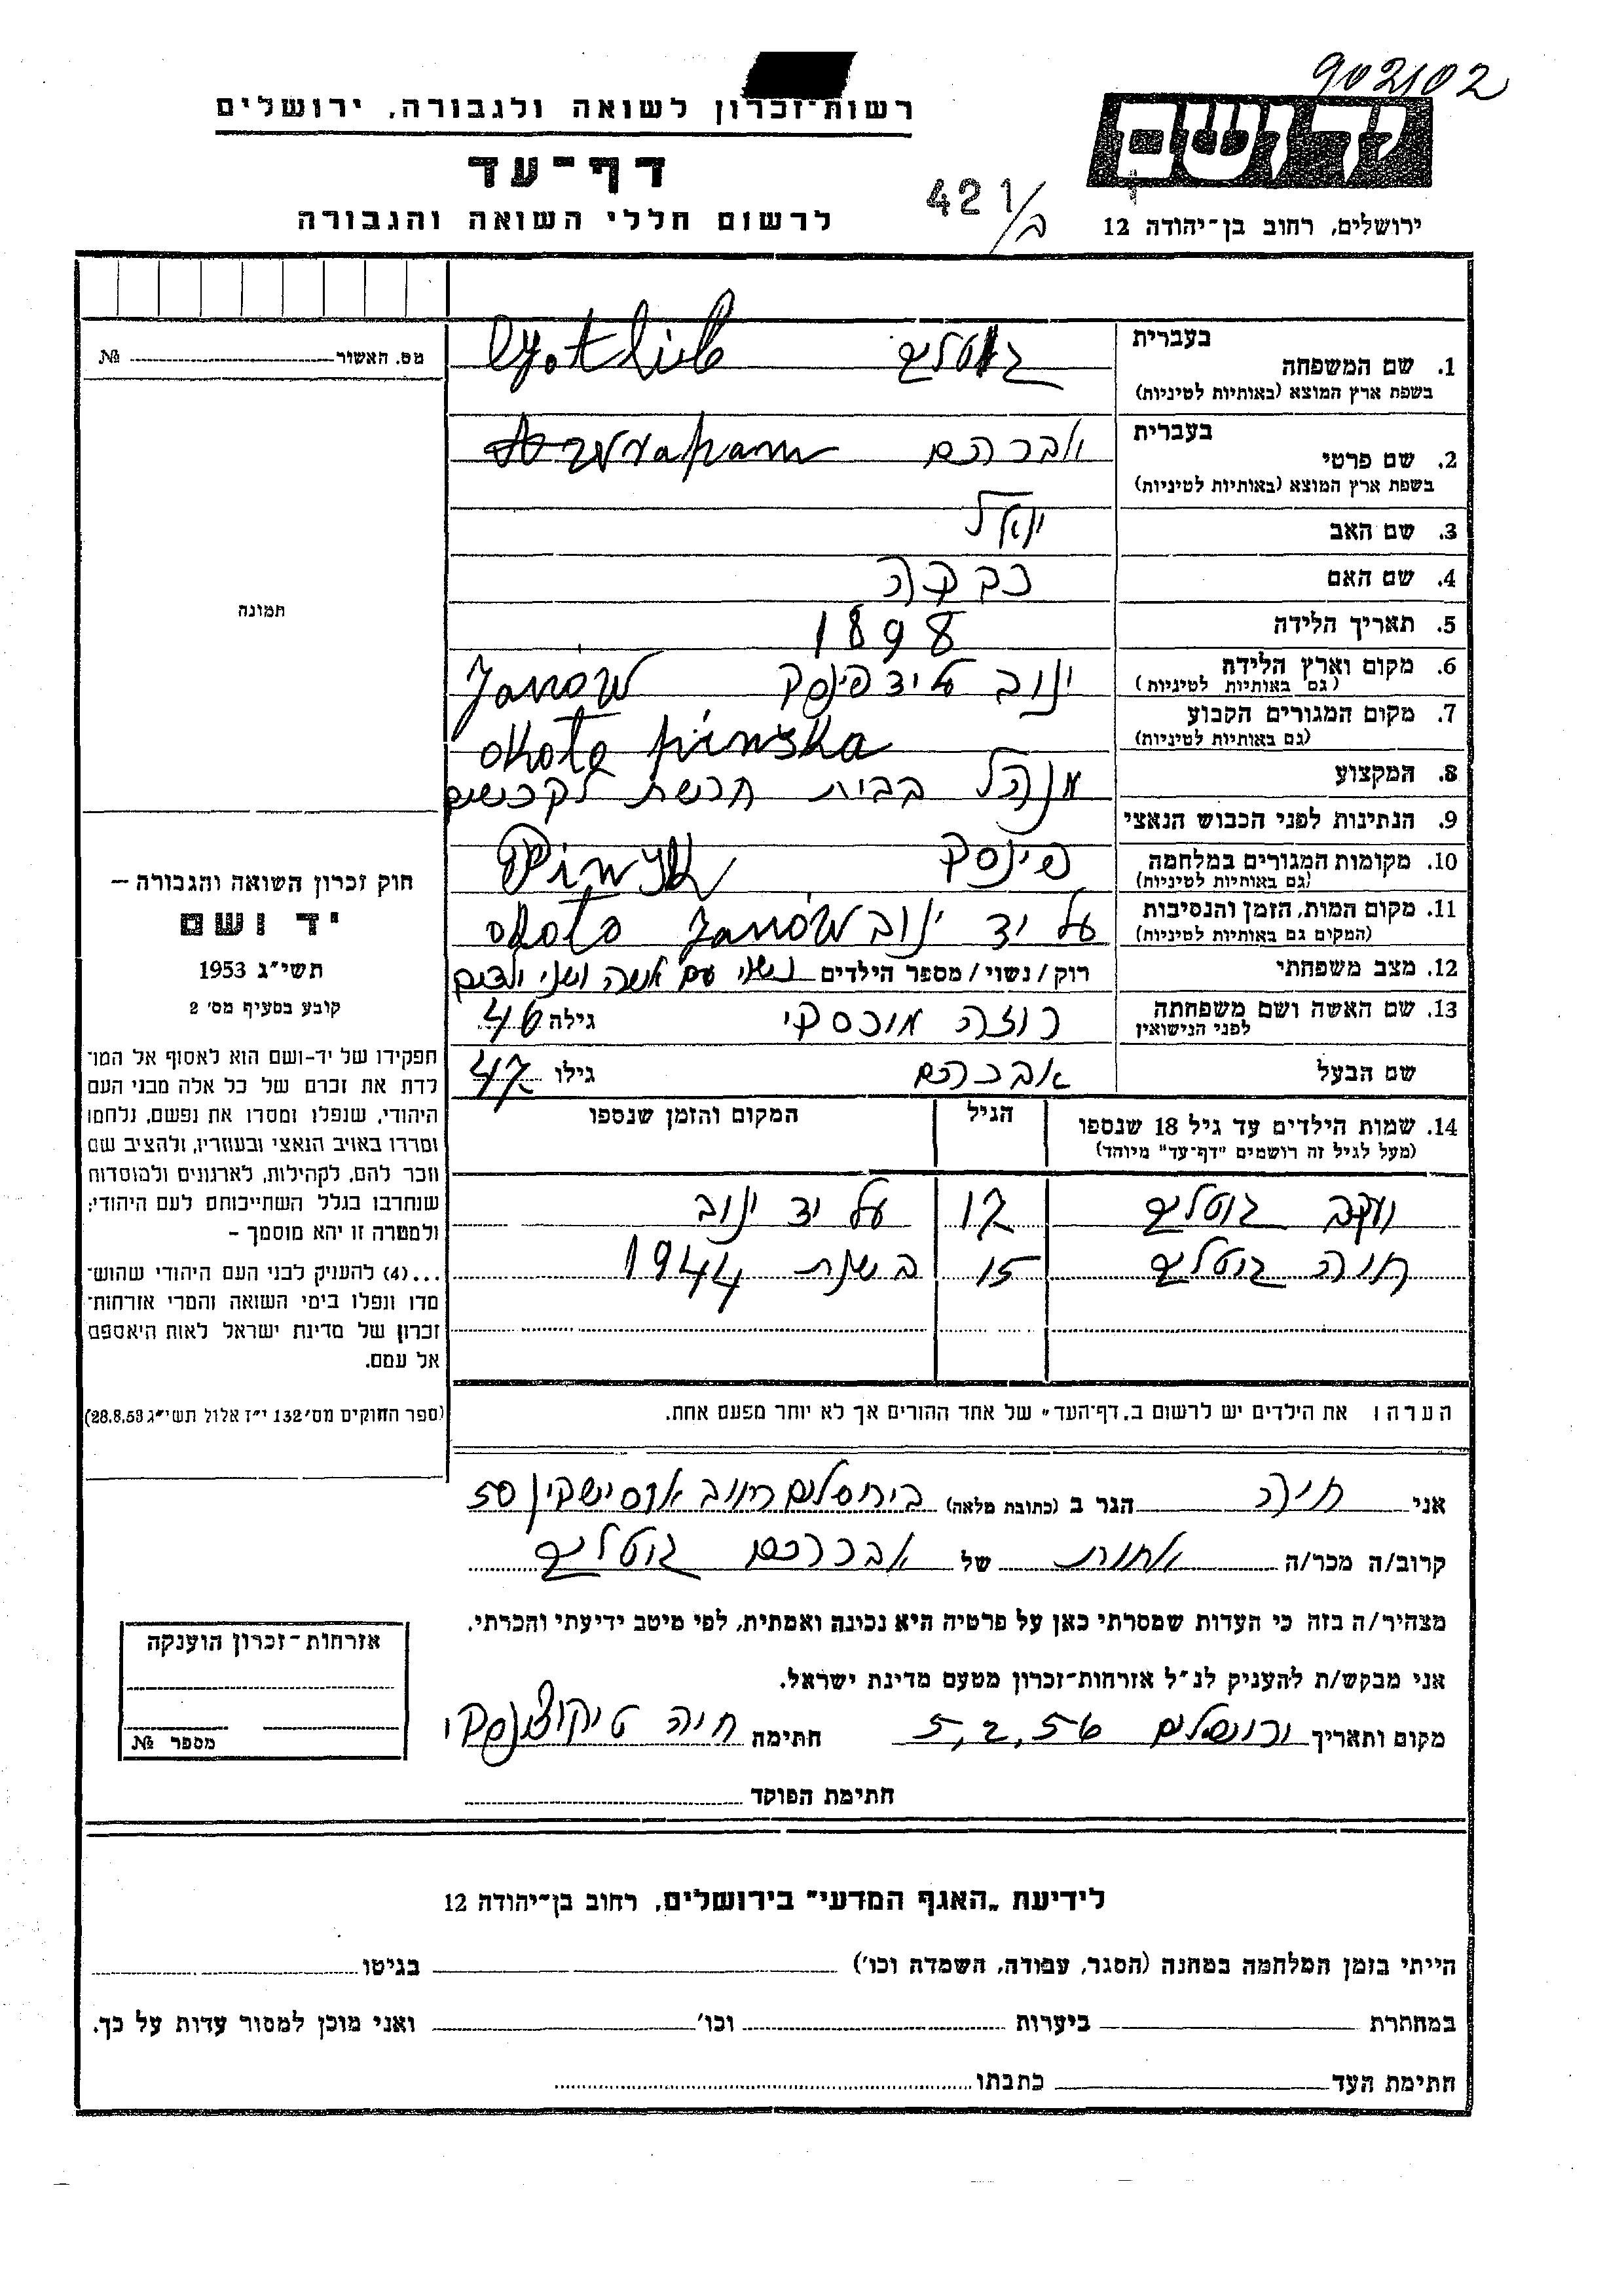 902102
רשות-זכרון לשואה ולגבורה, ירושלים
ידושם
דף-עד
לרשום חללי השואה והגבורה
421/ב
ירושלים, רחוב בן-יהודה 12
בעברית
1. שם המשפחה
בשפת ארץ המוצא (באותיות לטיניות)
גוטליב
מס. האשור № 
בעברית
2. שם פרטי
בשפת ארץ המוצא (באותיות לטיניות)
אברהם
3. שם האב יואל
4. שם האם רבקה
תמונה
5. תאריך הלידה 1898
6. מקום וארץ הלידה ינוב על יד פינסק Janów
(גם באותיות לטיניות)
7. מקום המגורים הקבוע okoto pinska
(גם באותיות לטיניות)
8. המקצוע מנהל בבית חרשת לקרשים
9. הנתינות לפני הכבוש הנאצי
10. מקומות המגורים במלחמה פינסק Pinsk
(גם באותיות לטיניות)
11. מקום המות, הזמן והנסיבות על יד ינוב okoto Janów
(המקום גם באותיות לטיניות)
12. מצב משפחתי רוק/נשוי/מספר הילדים נשוי עם אשה ושני ילדים
13. שם האשה ושם משפחתה רוזה גילה 46
לפני הנישואין
שם הבעל אברהם גילו 47
14. שמות הילדים עד גיל 18 שנספו הגיל המקום והזמן שנספו
(מעל לגיל זה רושמים "דף-עד" מיוחד)
יעקב גוטליב 17 על יד ינוב
חיה גוטליב 15 בשנת 1944
חוק זכרון השואה והגבורה –
יד ושם
תשי"ג 1953
קובע בסעיף מס' 2
תפקידו של יד-ושם הוא לאסוף אל המו־
לדת את זכרם של כל אלה מבני העם
היהודי, שנפלו ומסרו את נפשם, נלחמו
ומרדו באויב הנאצי ובעוזריו, ולהציב שם
וזכר להם, לקהילות, לארגונים ולמוסדות
שנחרבו בגלל השתייכותם לעם היהודי;
ולמטרה זו יהא מוסמך –
...(4) להעניק לבני העם היהודי שהוש־
מדו ונפלו בימי השואה והמרי אזרחות־
זכרון של מדינת ישראל לאות היאספם
אל עמם.
(ספר החוקים מס' 132 י"ז אלול תשי"ג 28.8.53)
הערה: את הילדים יש לרשום ב„דף-העד" של אחד ההורים אך לא יותר מפעם אחת.
אני חיה הגר ב (כתובת מלאה) בירושלים רחוב אוסישקין 50
קרוב/ה מכר/ה אחות של אברהם גוטליב
מצהיר/ה בזה כי העדות שמסרתי כאן על פרטיה היא נכונה ואמתית, לפי מיטב ידיעתי והכרתי.
אני מבקש/ת להעניק לנ"ל אזרחות-זכרון מטעם מדינת ישראל.
מקום ותאריך ירושלים 5,2,56 חתימה חיה
חתימת הפוקד
אזרחות-זכרון הוענקה
מספר №
לידיעת „האגף המדעי" בירושלים, רחוב בן-יהודה 12
הייתי בזמן המלחמה במחנה (הסגר, עבודה, השמדה וכו') בגיטו
במחתרת ביערות וכו' ואני מוכן למסור עדות על כך.
חתימת העד כתבתו